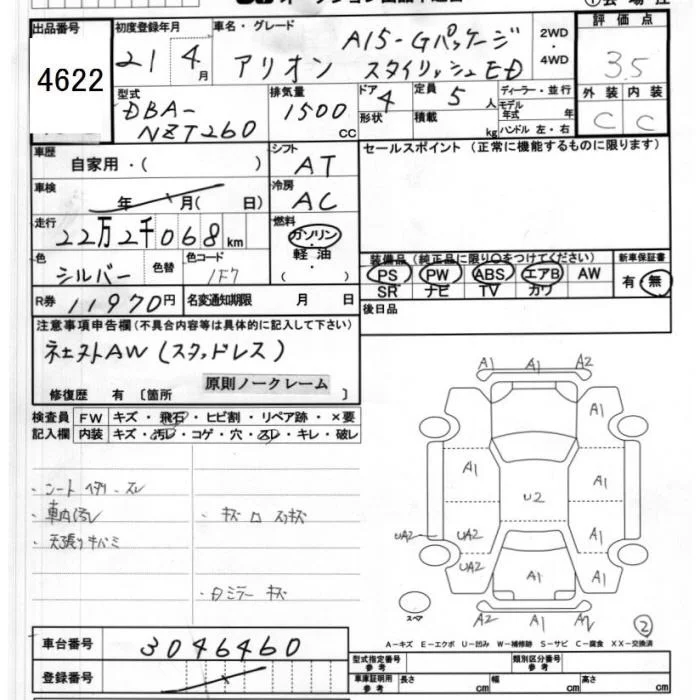 出品番号
4622
初度登録年月
21 4月
車名・グレード
アリオン
A15-Gパッケージ
スタイリッシュED
2WD
・
4WD
評価点
3.5
外装 内装
C C
型式
DBA-
NZT260
排気量
1500
CC
ドア
4
定員
5人
形状
積載
kg
ディーラー・並行
モデル
年式
年
ハンドル 左・右
車歴
自家用・( )
シフト
AT
セールスポイント (正常に機能するものに限ります)
車検
年 月( 日)
冷房
AC
走行
22万2千068km
燃料
ガソリン
・
軽油
( )
色
シルバー
色替
色コード
1F7
装備品 (純正品に限り○をつけてください)
PS PW ABS エアB AW
SR ナビ TV カワ
新車保証書
有・無
R券 11970円
名変通知期限 月 日
後日品
注意事項申告欄(不具合内容等は具体的に記入して下さい)
社外AW (スタッドレス)
原則ノークレーム
修復歴 有 〔箇所 〕
検査員
記入欄
FW キズ・飛石・ヒビ割・リペア跡・×要
内装 キズ・汚レ・コゲ・穴・スレ・キレ・破レ
・シート ヘタリ・スレ
・車内汚レ
・天張りキバミ
・キズ ロ スリキズ
・ロミラー キズ
A1 A1 A2
A1
A1 A1
U2
UA2 UA2 A1
UA2 A1 A1
スペア
A2 A1 A2
2
A-キズ E-エクボ U-凹み W-補修跡 S-サビ C-腐食 XX-交換済
車台番号
3046460
登録番号
型式指定番号
参考
類別区分番号
参考
車庫証明用
参考
長さ cm 幅 cm 高さ cm